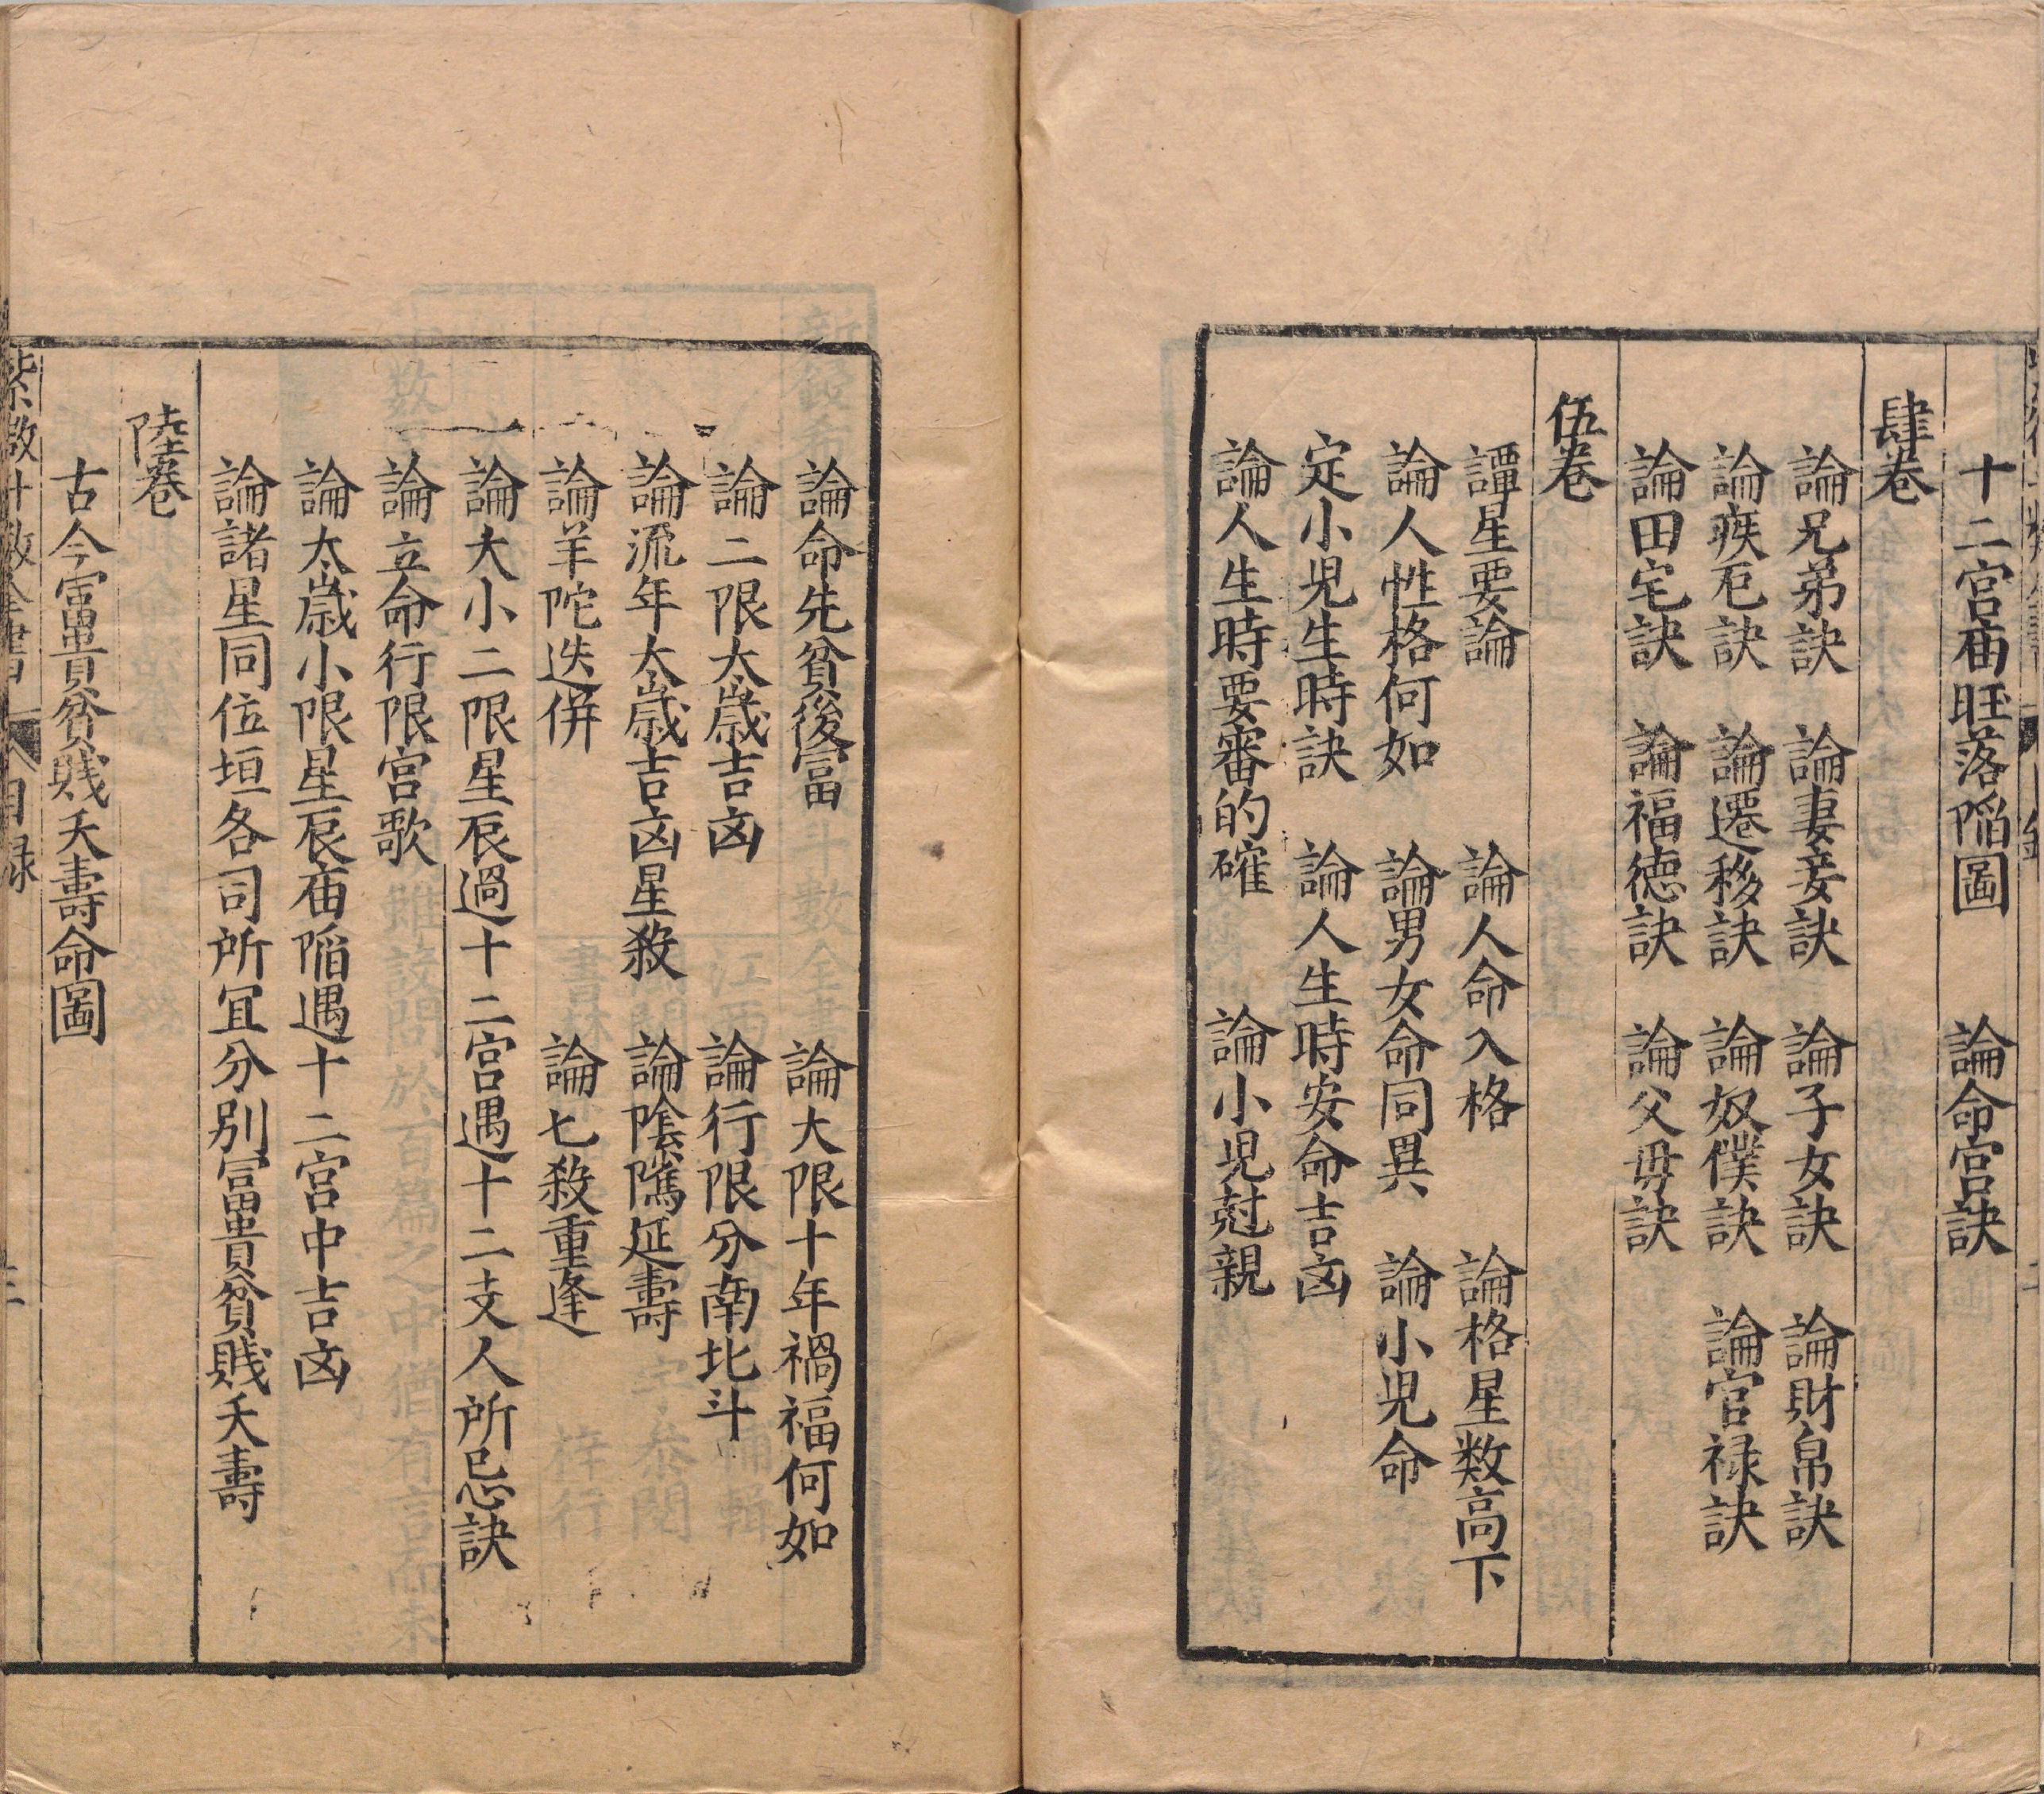 十二宮庙旺落陷圖　論命宮訣
肆卷
論兄弟訣　論妻妾訣　論子女訣　論財帛訣
論疾厄訣　論遷移訣　論奴僕訣　論官禄訣
論田宅訣　論福德訣　論父母訣
伍卷
譚星要論　論人命入格　論格星数高下
論人性格何如　論男女命同異　論小兒命
定小児生時訣　論人生時安命吉凶
論人生時要審的確　論小児尅親
論命先貧後富　論大限十年禍福何如
論二限太歲吉凶　論行限分南北斗
論流年太歲吉凶星殺　論陰隲延壽
論羊陀迭併　論七殺重逢
論大小二限星辰過十二宮遇十二支人所忌訣
論立命行限宮歌
論太歲小限星辰庙陷遇十二宮中吉凶
論諸星同位垣各司所宜分別冨貴貧賤夭壽
陸卷
古今富貴貧賤夭壽命圖
目録